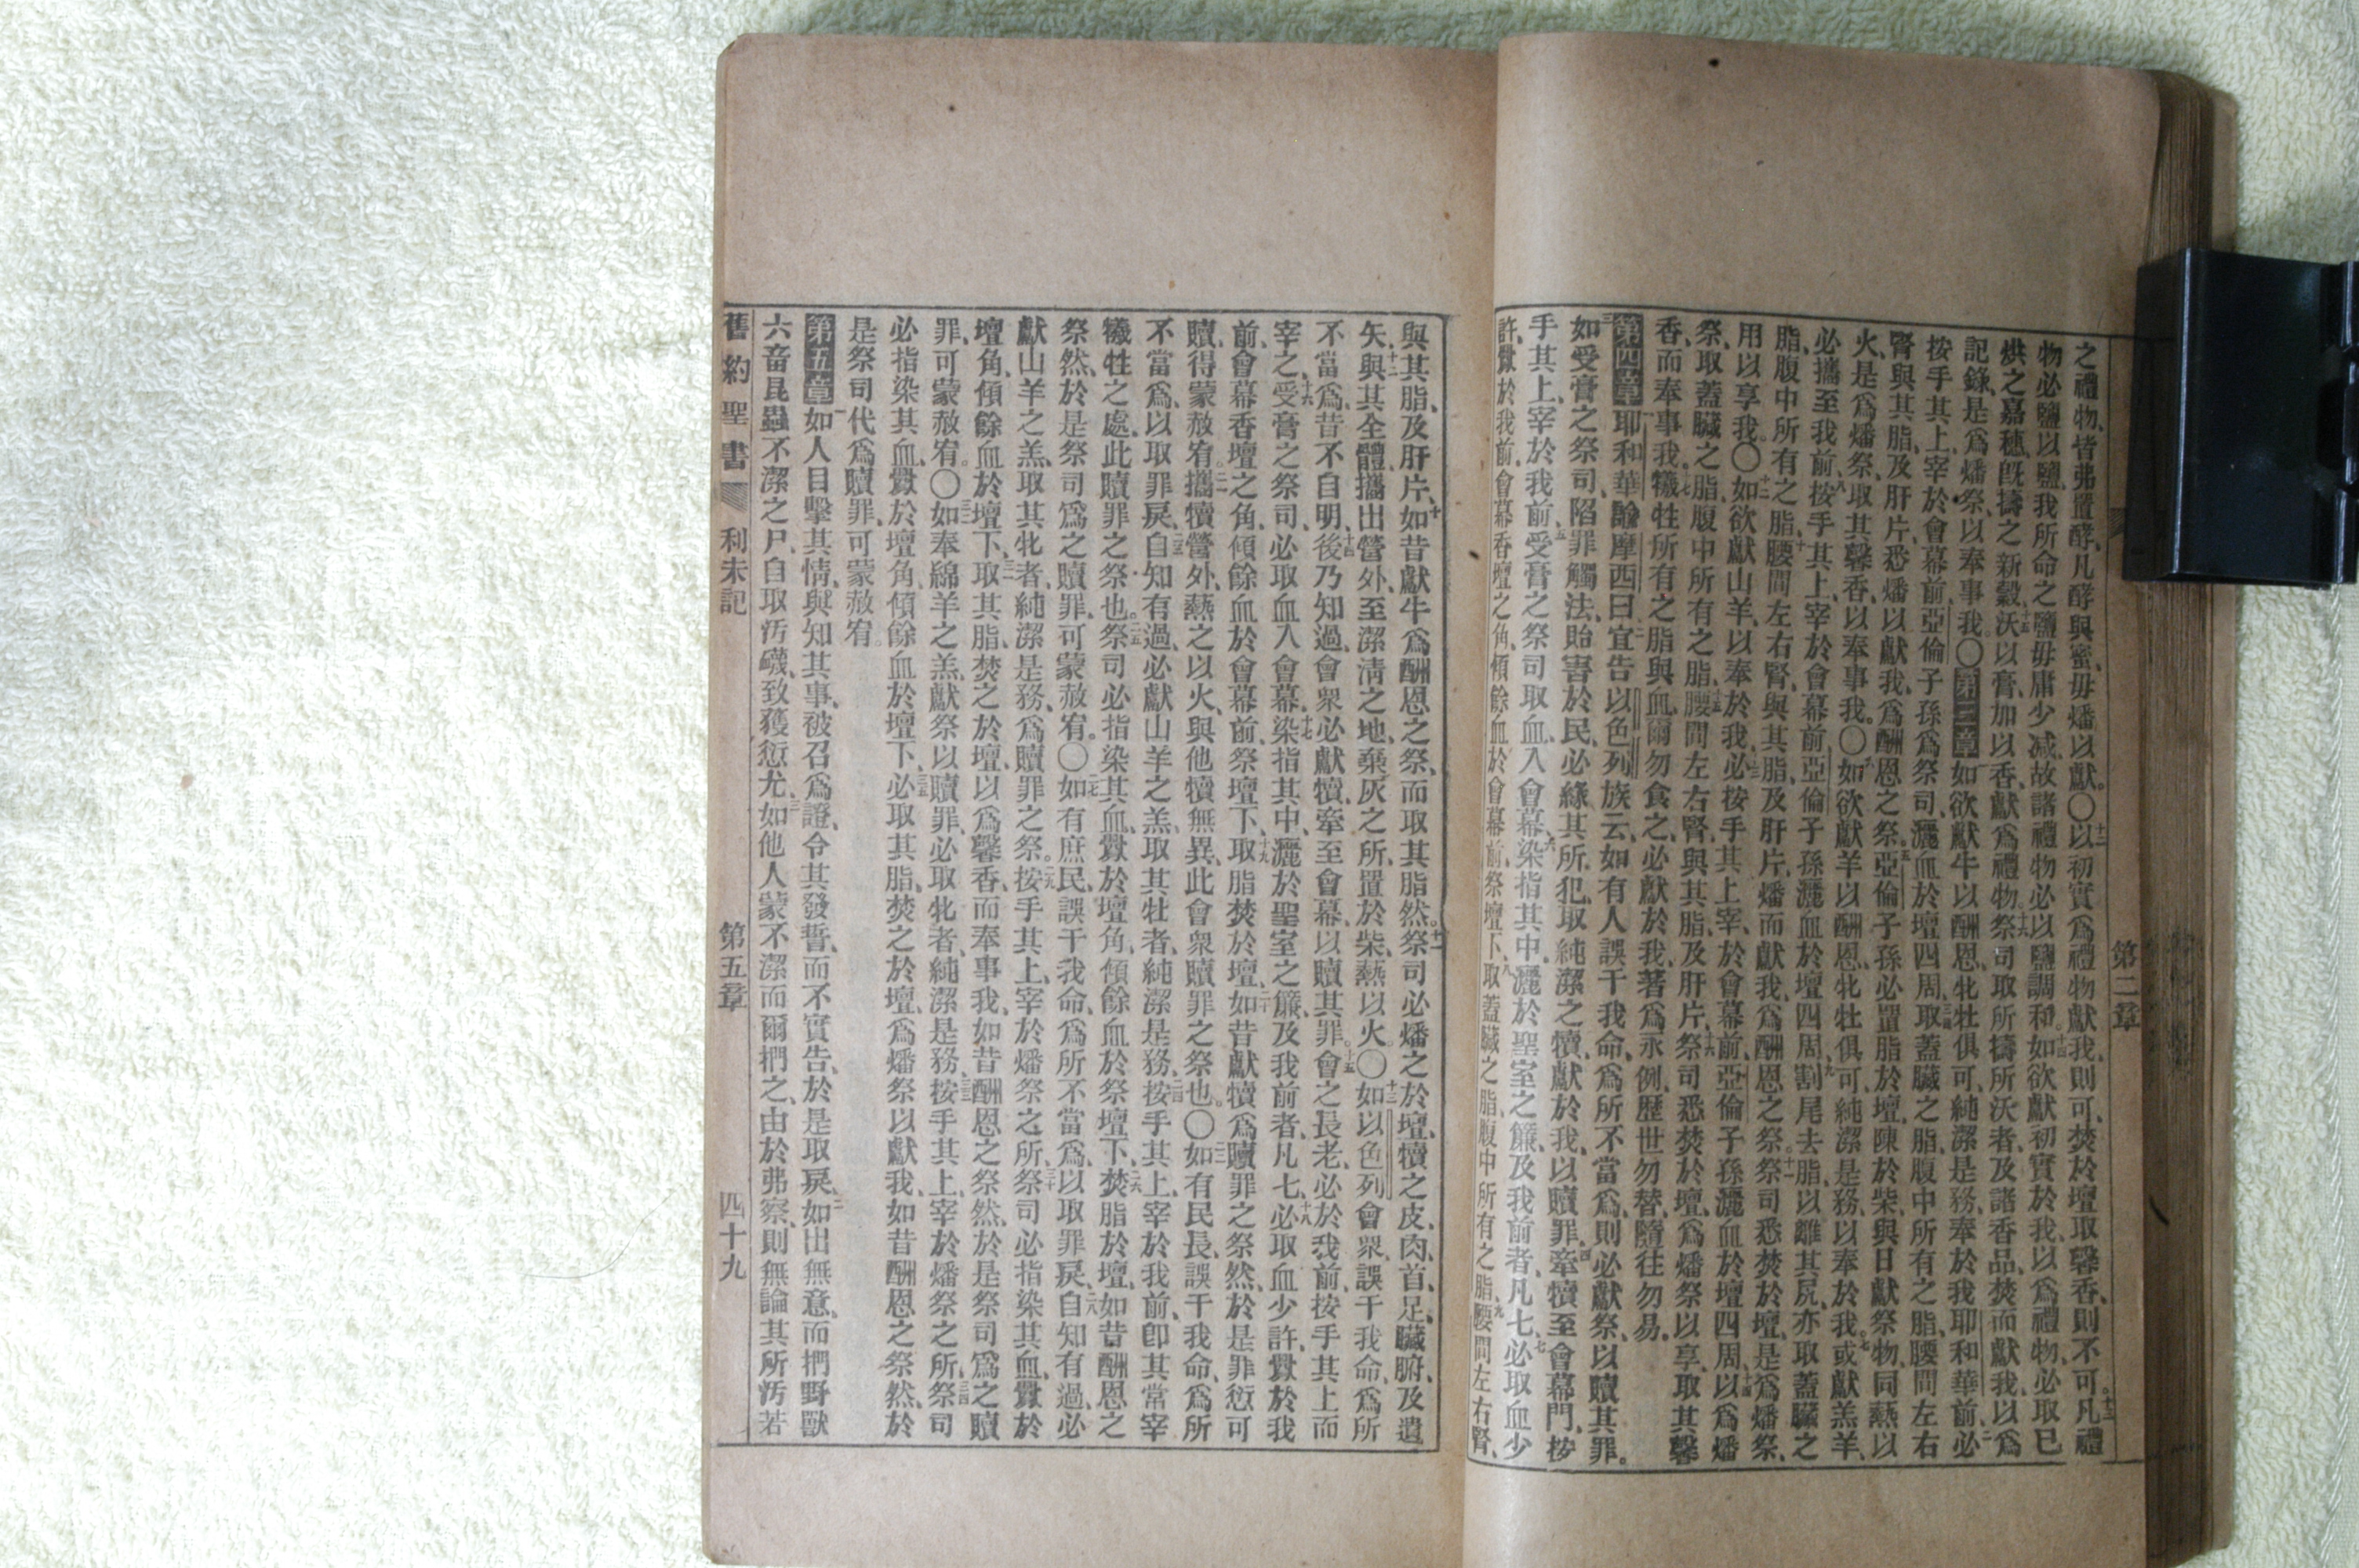 第二章
之禮物、皆弗置酵、凡酵與蜜、毋燔以獻。〇十二以初實爲禮物獻我、則可、焚於壇取馨香、則不可。十三凡禮
物必鹽以鹽、我所命之鹽毋庸少減、故諸禮物必以鹽調和。十四如欲獻初實於我、以爲禮物、必取已
烘之嘉穗、旣擣之新穀、十五沃以膏、加以香、獻爲禮物。十六祭司取所擣所沃者、及諸香品、焚而獻我、以爲
記錄、是爲燔祭、以奉事我。〇第三章一如欲獻牛以酬恩、牝牡俱可、純潔是務、奉於我耶和華前、二必
按手其上、宰於會幕前、亞倫子孫爲祭司、灑血於壇四周、三取蓋臟之脂、腹中所有之脂、四腰間左右
腎、與其脂、及肝片、悉燔以獻我、爲酬恩之祭、五亞倫子孫必置脂於壇、陳於柴、與日獻祭物、同爇以
火、是爲燔祭、取其馨香、以奉事我。〇六如欲獻羊以酬恩、牝牡俱可、純潔是務、以奉於我。七或獻羔羊、
必攜至我前、八按手其上、宰於會幕前、亞倫子孫灑血於壇四周、九割尾去脂、以離其尻、亦取蓋臟之
脂、腹中所有之脂、十腰間左右腎、與其脂、及肝片、燔而獻我、爲酬恩之祭。十一祭司悉焚於壇、是爲燔祭、
用以享我。〇十二如欲獻山羊、以奉於我、十三必按手其上、宰於會幕前、亞倫子孫灑血於壇四周、十四以爲燔
祭、取蓋臟之脂、腹中所有之脂、十五腰間左右腎、與其脂、及肝片、十六祭司悉焚於壇、爲燔祭以享、取其馨
香、而奉事我。十七犧牲所有之脂與血、爾勿食之、必獻於我、著爲永例、歷世勿替、隨往勿易。
第四章一耶和華諭摩西曰、二宜告以色列族云、如有人誤干我命、爲所不當爲、則必獻祭、以贖其罪。
三如受膏之祭司陷罪觸法、貽害於民、必緣其所犯、取純潔之犢、獻於我、以贖罪、四牽犢至會幕門、按
手其上、宰於我前、五受膏之祭司取血、入會幕、六染指其中、灑於聖室之簾、及我前者、凡七、七必取血少
許、釁於我前、會幕香壇之角、傾餘血於會幕前、祭壇下、八取蓋臟之脂、腹中所有之脂、九腰間左右腎、
與其脂、及肝片、十如昔獻牛爲酬恩之祭、而取其脂然。祭司必燔之於壇、十一犢之皮、肉、首、足、臟腑、及遺
矢、十二與其全體、攜出營外、至潔淸之地、棄灰之所、置於柴、爇以火。〇十三如以色列會眾、誤干我命、爲所
不當爲、昔不自明、十四後乃知過、會眾必獻犢、牽至會幕、以贖其罪。十五會之長老、必於我前、按手其上而
宰之、十六受膏之祭司、必取血入會幕、十七染指其中、灑於聖室之簾、及我前者、凡七、十八必取血少許、釁於我
前、會幕香壇之角、傾餘血於會幕前、祭壇下、十九取脂焚於壇、二十如昔獻犢爲贖罪之祭然、於是罪愆可
贖、得蒙赦宥。二一攜犢營外、爇之以火、與他犢無異、此會衆贖罪之祭也。〇二二如有民長、誤干我命、爲所
不當爲、以取罪戾、二三自知有過、必獻山羊之羔、取其牡者、純潔是務、二四按手其上、宰於我前、卽其常宰
犧牲之處、此贖罪之祭也。二五祭司必指染其血、釁於壇角、傾餘血於祭壇下、二六焚脂於壇、如昔酬恩之
祭然、於是祭司爲之贖罪、可蒙赦宥。〇二七如有庶民、誤干我命、爲所不當爲、以取罪戾、二八自知有過、必
獻山羊之羔、取其牝者、純潔是務、爲贖罪之祭。二九按手其上、宰於燔祭之所、三十祭司必指染其血、釁於
壇角、傾餘血於壇下、三一取其脂、焚之於壇、以爲馨香、而奉事我、如昔酬恩之祭然、於是祭司爲之贖
罪、可蒙赦宥。〇三二如奉綿羊之羔、獻祭以贖罪、必取牝者、純潔是務、三三按手其上、宰於燔祭之所、三四祭司
必指染其血、釁於壇角、傾餘血於壇下、三五必取其脂、焚之於壇、爲燔祭以獻我、如昔酬恩之祭然、於
是祭司代爲贖罪、可蒙赦宥。
第五章一如人目擊其情、與知其事、被召爲證、令其發誓、而不實告、於是取戾、二如出無意、而捫野獸
六畜昆蟲不潔之尸、自取汚衊、致獲愆尤、三如他人蒙不潔、而爾捫之、由於弗察、則無論其所汚若
舊約聖書 利未記 第五章 四十九